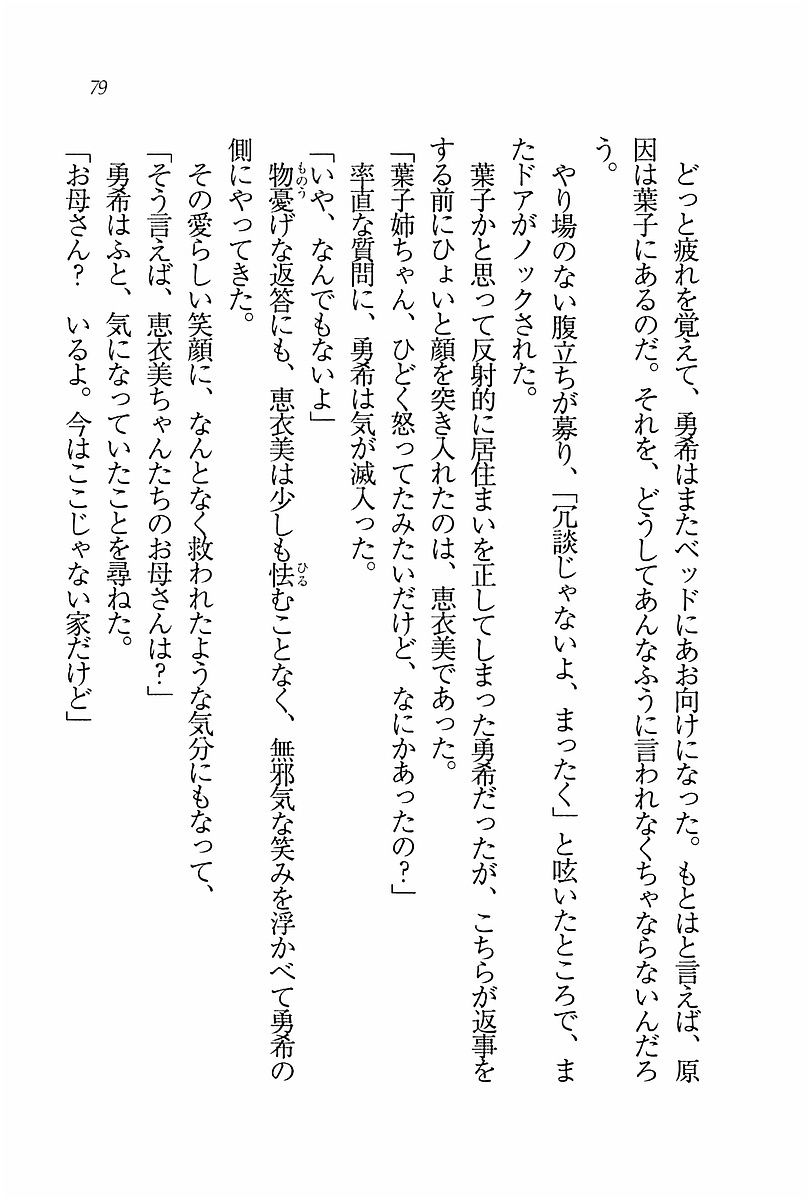 79
どっと疲れを覚えて、勇希はまたベッドにあお向けになった。もとはと言えば、原
因は葉子にあるのだ。それを、どうしてあんなふうに言われなくちゃならないんだろ
う。
やり場のない腹立ちが募り、「冗談じゃないよ、まったく」と呟いたところで、ま
たドアがノックされた。
葉子かと思って反射的に居住まいを正してしまった勇希だったが、こちらが返事を
する前にひょいと顔を突き入れたのは、恵衣美であった。
「葉子姉ちゃん、ひどく怒ってたみたいだけど、なにかあったの?」
率直な質問に、勇希は気が滅入った。
「いや、なんでもないよ」
物憂げな返答にも、恵衣美は少しも怯むことなく、無邪気な笑みを浮かべて勇希の
ものう
ひる
側にやってきた。
その愛らしい笑顔に、なんとなく救われたような気分にもなって、
「そう言えば、恵衣美ちゃんたちのお母さんは?」
勇希はふと、気になっていたことを尋ねた。
「お母さん? いるよ。今はここじゃない家だけど」